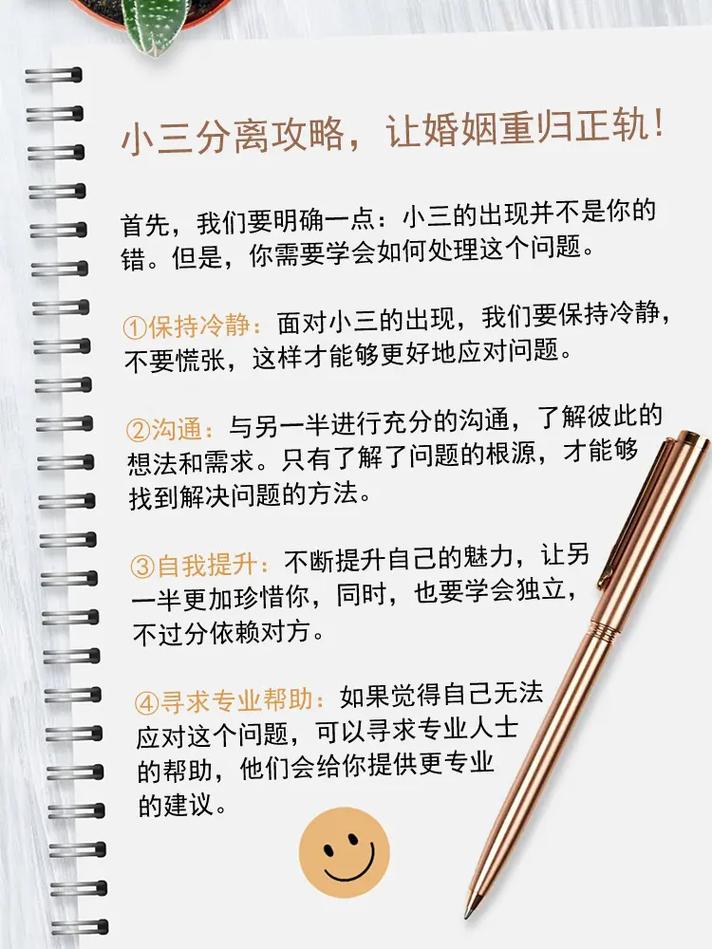 小三分离攻略，让婚姻重归正轨！
首先，我们要明确一点：小三的出现并不是你的
错。但是，你需要学会如何处理这个问题。
①保持冷静：面对小三的出现，我们要保持冷静，
不要慌张，这样才能够更好地应对问题。
②沟通：与另一半进行充分的沟通，了解彼此的
想法和需求。只有了解了问题的根源，才能够
找到解决问题的方法。
③自我提升：不断提升自己的魅力，让另
一半更加珍惜你，同时，也要学会独立，
不过分依赖对方。
④寻求专业帮助：如果觉得自己无法
应对这个问题，可以寻求专业人士
的帮助，他们会给你提供更专业
的建议。